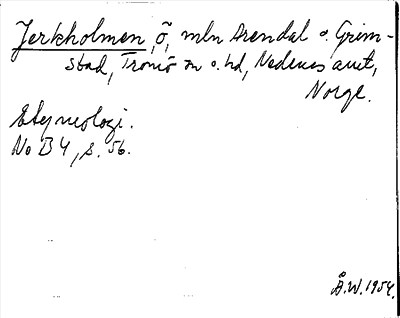 Jerkholmen, ö, mln Arendal o. Grim-
stad, Tromö sn o. hd, Nedenes amt,
Norge.
Etymologi.
No B 4, s. 56.
Å.W. 1954.